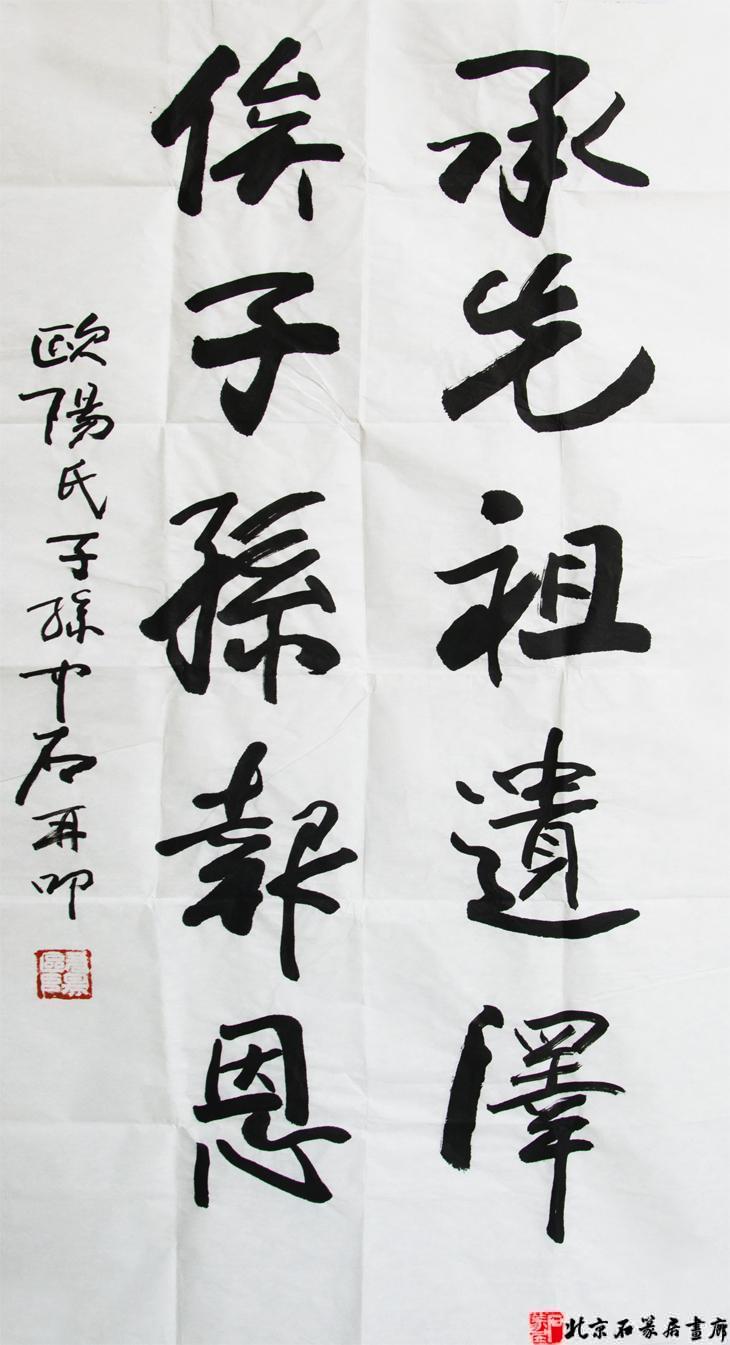 承先祖遺澤
俟子孫報恩
歐陽氏子孫中石再叩
北京石篆居畫廊